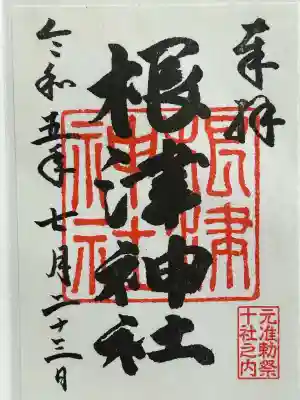 奉拝
根津神社
根津
神社
元准勅祭
十社之内
令和五年七月二十三日